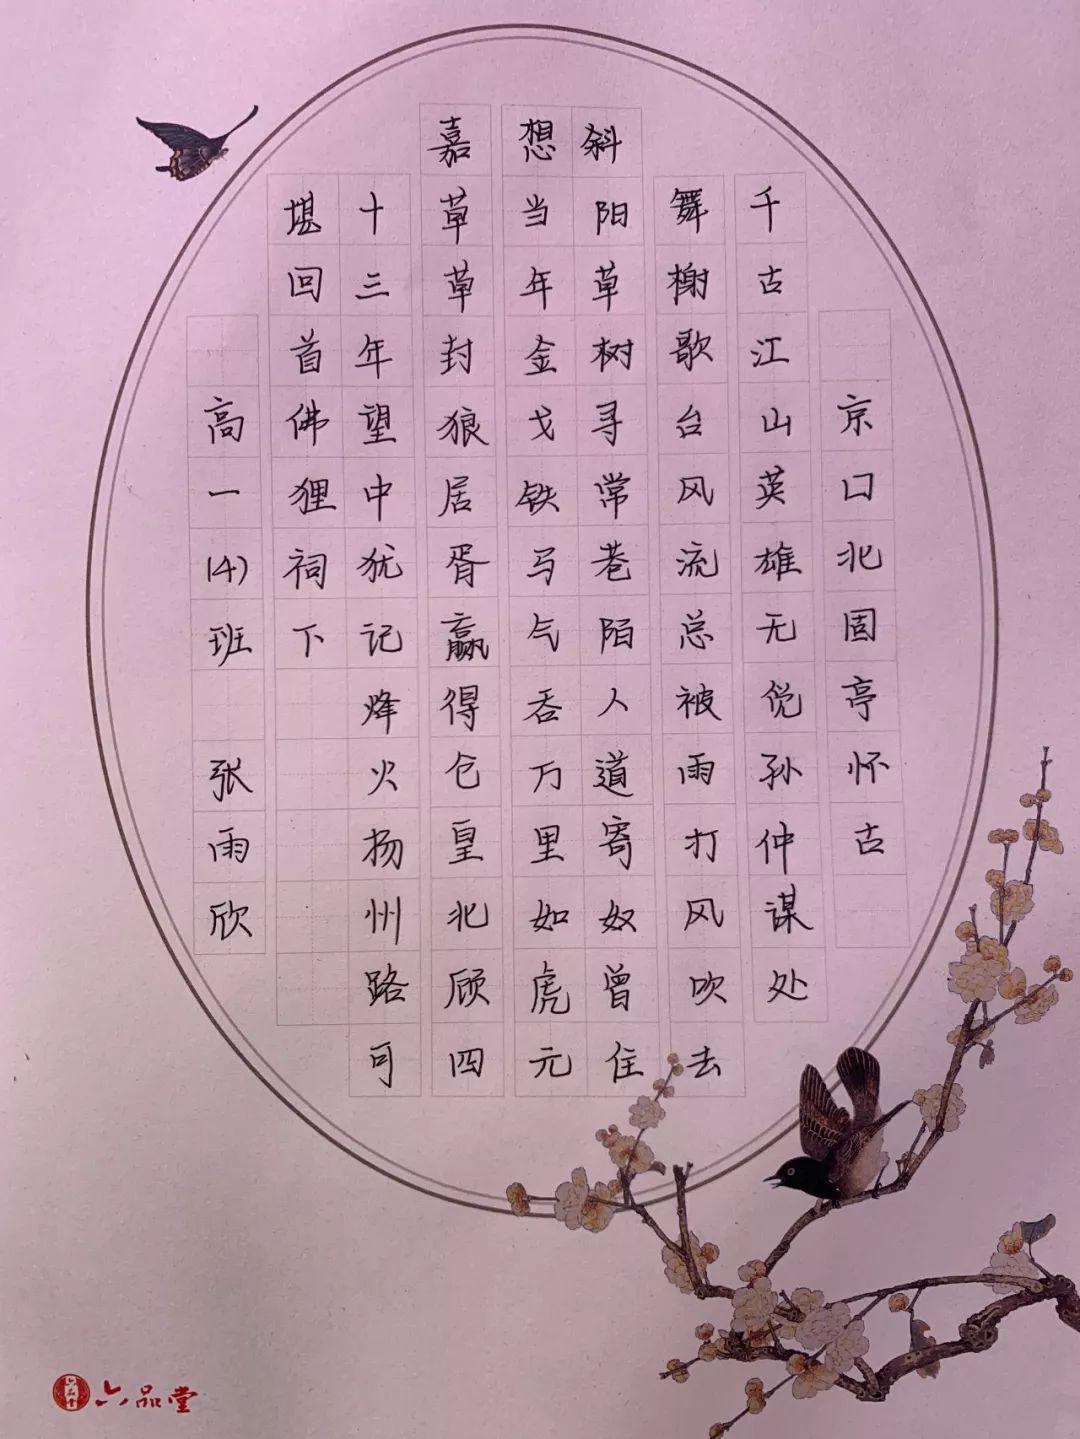 京口北固亭怀古
千古江山英雄无觅孙仲谋处
舞榭歌台风流总被雨打风吹去
斜阳草树寻常巷陌人道寄奴曾住
想当年金戈铁马气吞万里如虎元
嘉草草封狼居胥赢得仓皇北顾四
十三年望中犹记烽火扬州路可
堪回首佛狸祠下
高一(4)班 张雨欣
六品堂